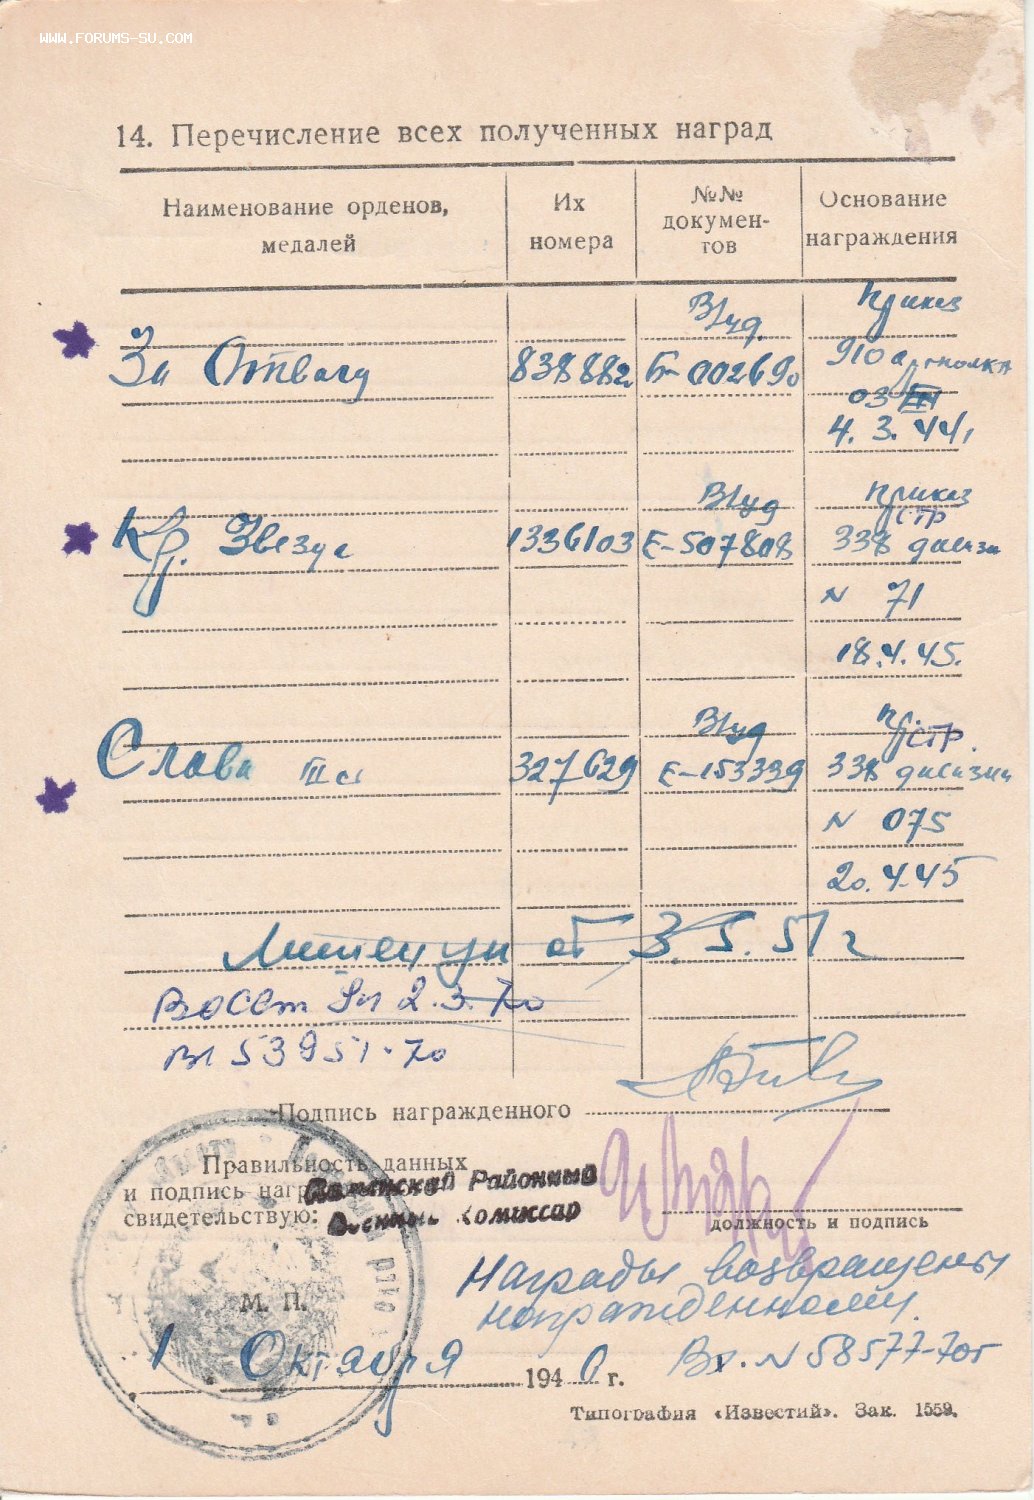 WWW.FORUMS-SU.COM
14. Перечисление всех полученных наград
Наименование орденов, медалей
Их номера
№№ докумен-
тов
Основание награждения
Вр уд. Приказ
За Отвагу 838882 Б-002690 910 артполка
03
4. 3. 44г
Вр уд Приказ
стр
Кр. Звезда 1336103 Е-507808 338 дивизи
N 71
18.4.45.
Вр уд пр. стр.
Слава III ст 327629 Е-153339 338 дивизии
N 075
20.4.45
Лишен ук от 3.5.51 г
Восст Ук 2.3.70
Вх 53951-70
Подпись награжденного
Правильность данных
и подпись награ
свидетельствую:
Районный
Военный Комиссар
должность и подпись
Награды возвращены
награжденному.
М. П.
Вх. N 58577-70г
1 Октября 1940 г.
Типография «Известий». Зак. 1559.